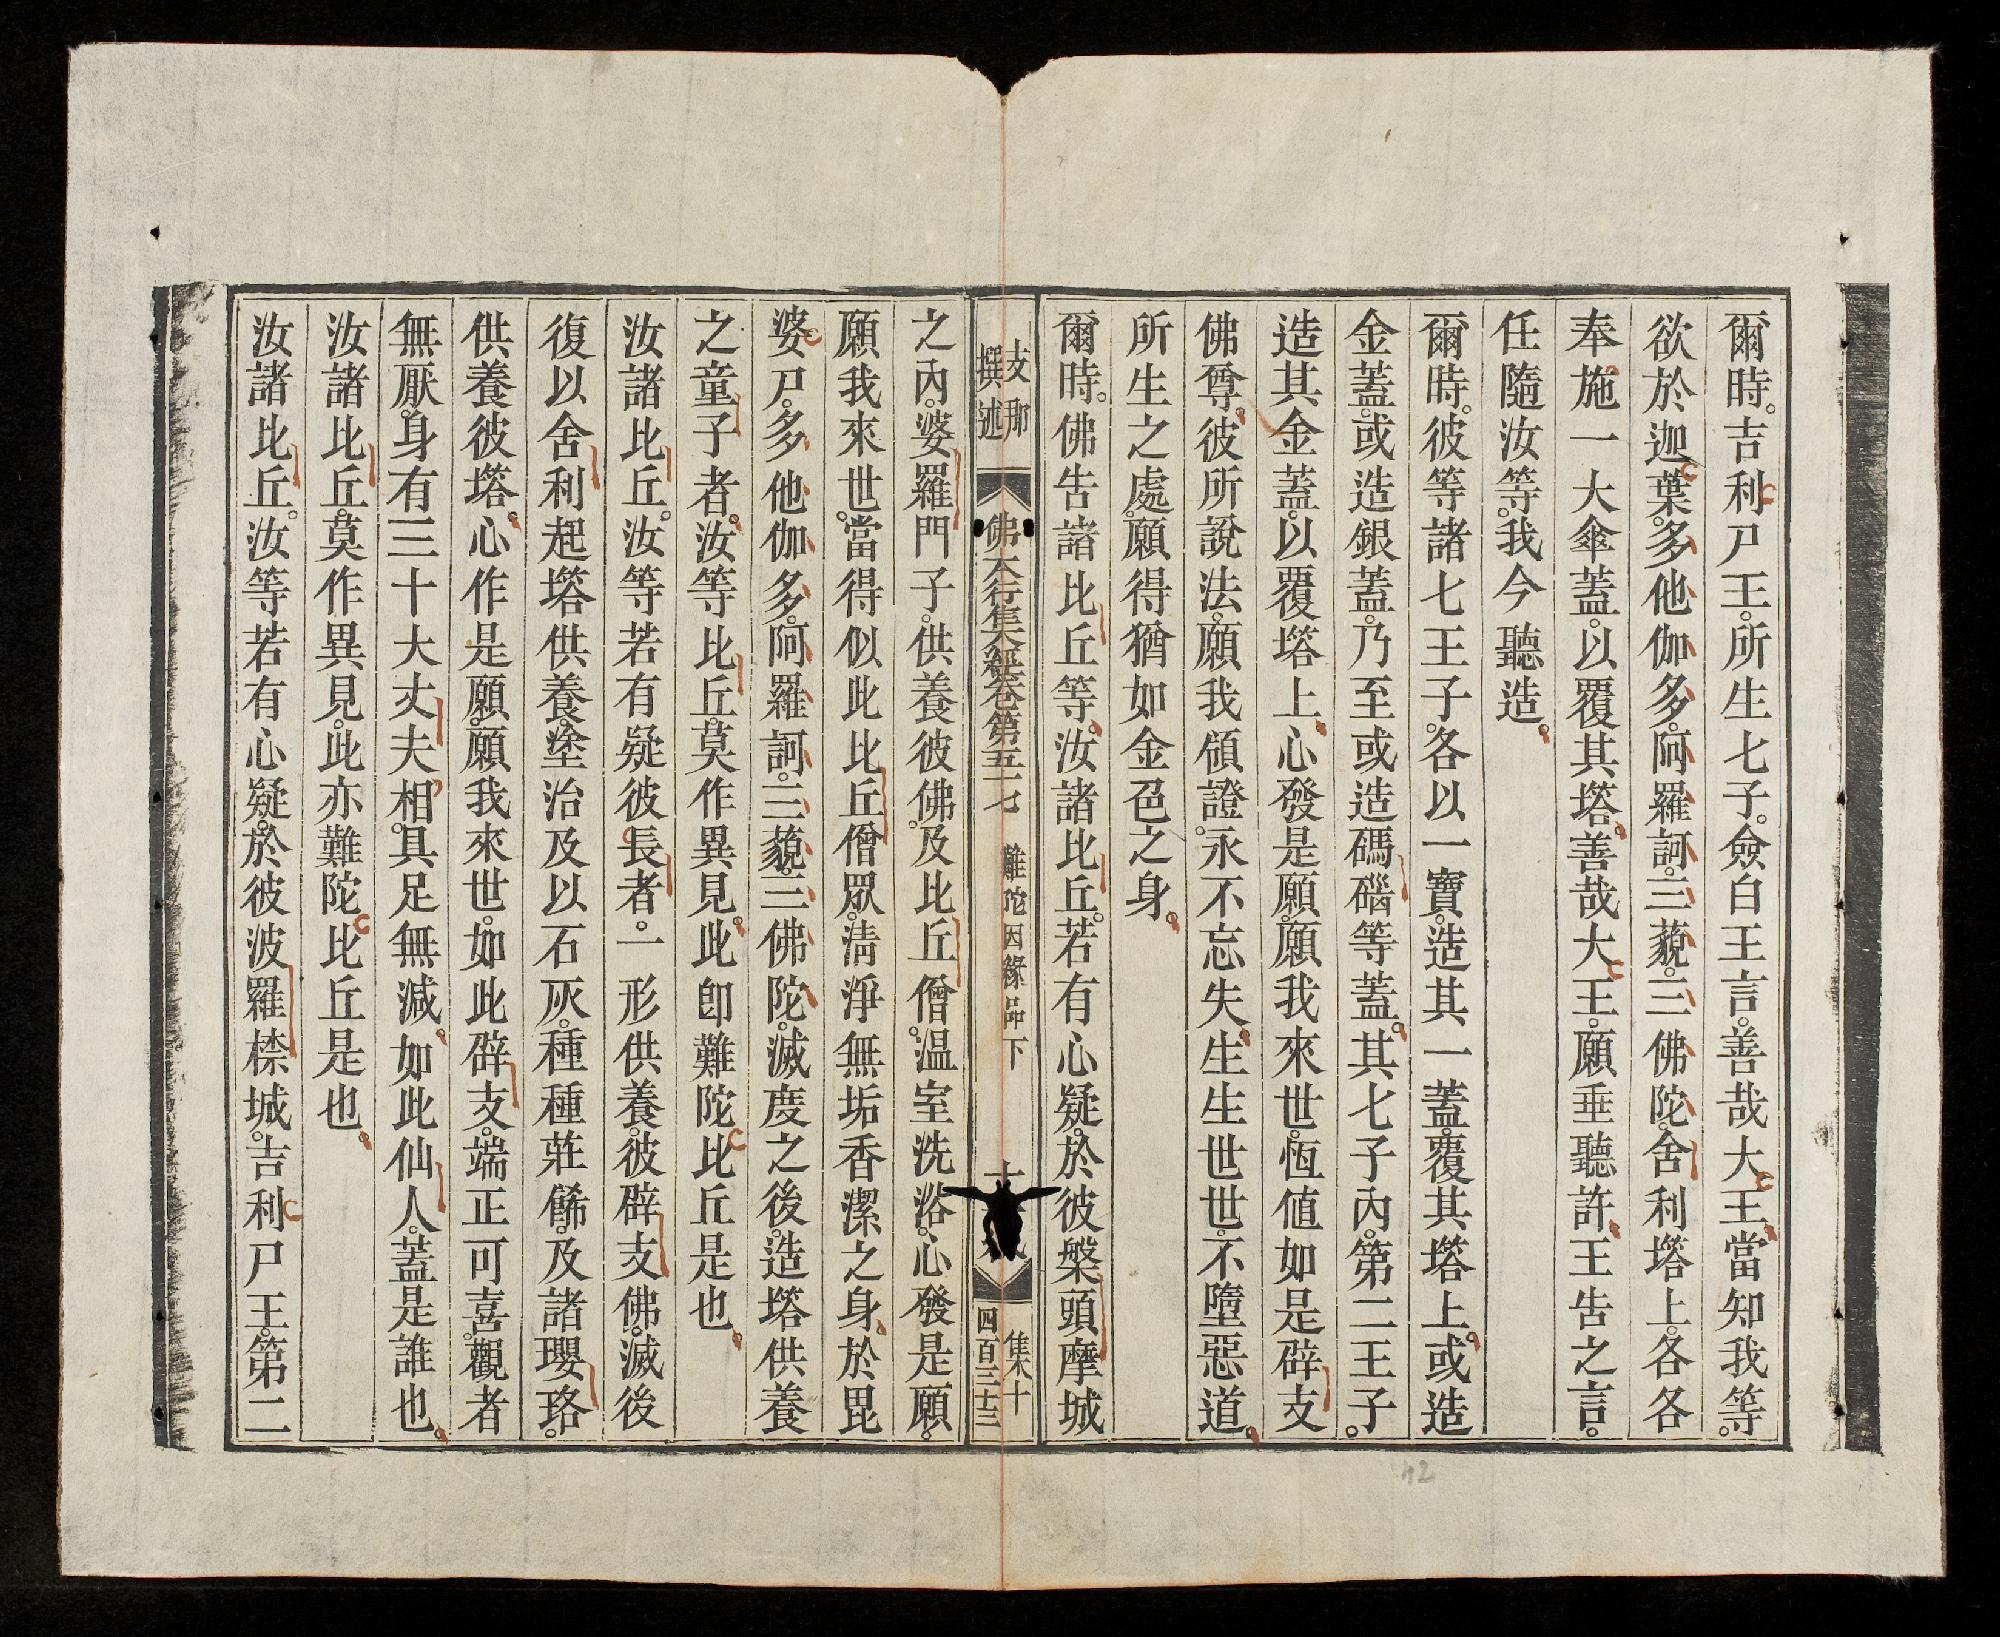 爾時。吉利尸王。所生七子。僉白王言。善哉大王。當知我等。
欲於迦葉。多他伽多。阿羅訶。三藐。三佛陀。舍利塔上。各各
奉施一大傘蓋。以覆其塔。善哉大王。願垂聽許。王告之言。
任隨汝等。我今聽造。
爾時。彼等諸七王子。各以一寶。造其一蓋。覆其塔上。或造
金蓋。或造銀蓋。乃至或造碼碯等蓋。其七子內。第二王子。
造其金蓋。以覆塔上。心發是願。願我來世。恆值如是辟支
佛尊。彼所說法。願我領證。永不忘失。生生世世。不墮惡道。
所生之處。願得猶如金色之身。
爾時。佛告諸比丘等。汝諸比丘。若有心疑。於彼槃頭摩城
支那
撰述
佛本行集經卷第五十七 難陀因緣品下
集十
四百三十三
之內。婆羅門子。供養彼佛。及比丘僧。溫室洗浴。心發是願。
願我來世。當得似此比丘僧眾。清淨無垢香潔之身。於毘
婆尸。多他伽多。阿羅訶。三藐。三佛陀。滅度之後。造塔供養
之童子者。汝等比丘。莫作異見。此即難陀比丘是也。
汝諸比丘。汝等若有疑彼長者。一形供養。彼辟支佛。滅後
復以舍利起塔供養。塗治及以石灰。種種莊飾。及諸瓔珞。
供養彼塔。心作是願。願我來世。如此辟支。端正可喜。觀者
無厭。身有三十大丈夫相。具足無減。如此仙人。蓋是誰也。
汝諸比丘。莫作異見。此亦難陀比丘是也。
汝諸比丘。汝等若有心疑。於彼波羅㮈城。吉利尸王。第二